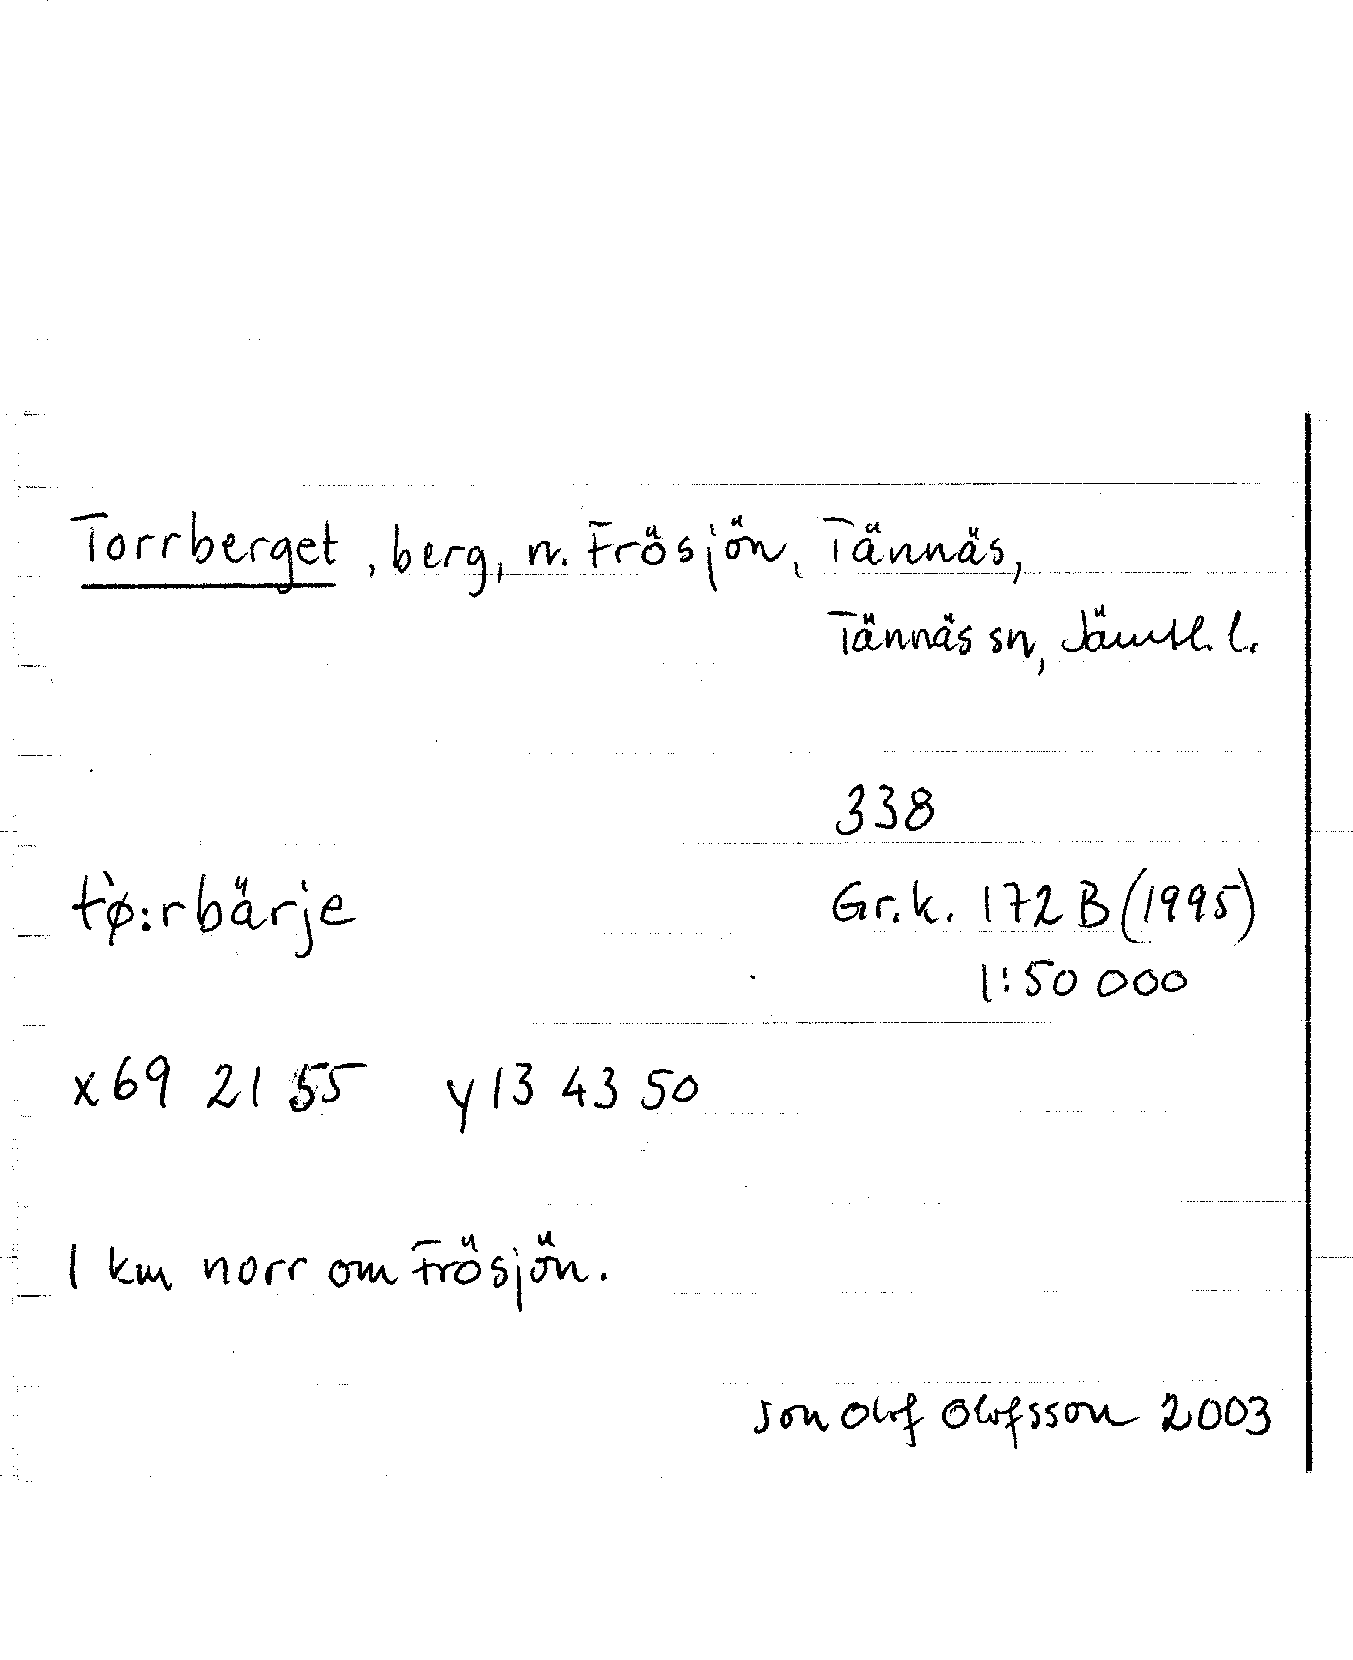 Torrberget, berg, n. Frösjön, Tännäs,
Tännäs sn, Jämtl. l.
338
tø̀:rbärje
Gr.k. 172 B (1995)
1:50 000
x69 21 55 y13 43 50
1 km norr om Frösjön.
Jon Olof Olofsson 2003